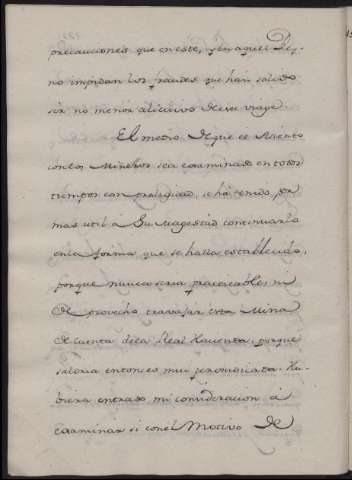 precauciones que en este, y en aquel Rey-
no impidan los fraudes que han salido
ser no menor alicivio de ese viage.
El medio de que el Asiento
con los Mineros sea examinado en todos
tiempos con prolixidad, se há tenido por
mas util á Su Magestad continuarlo
en la forma que se halla establecido,
porque nunca sera practicable, ni
de provecho travajar esta Mina
de cuenta dela Real Hacienda, porque
saldria entonces mui perjudicada. Hu-
biera entrado mi consideracion á
examinar si con el Motivo de